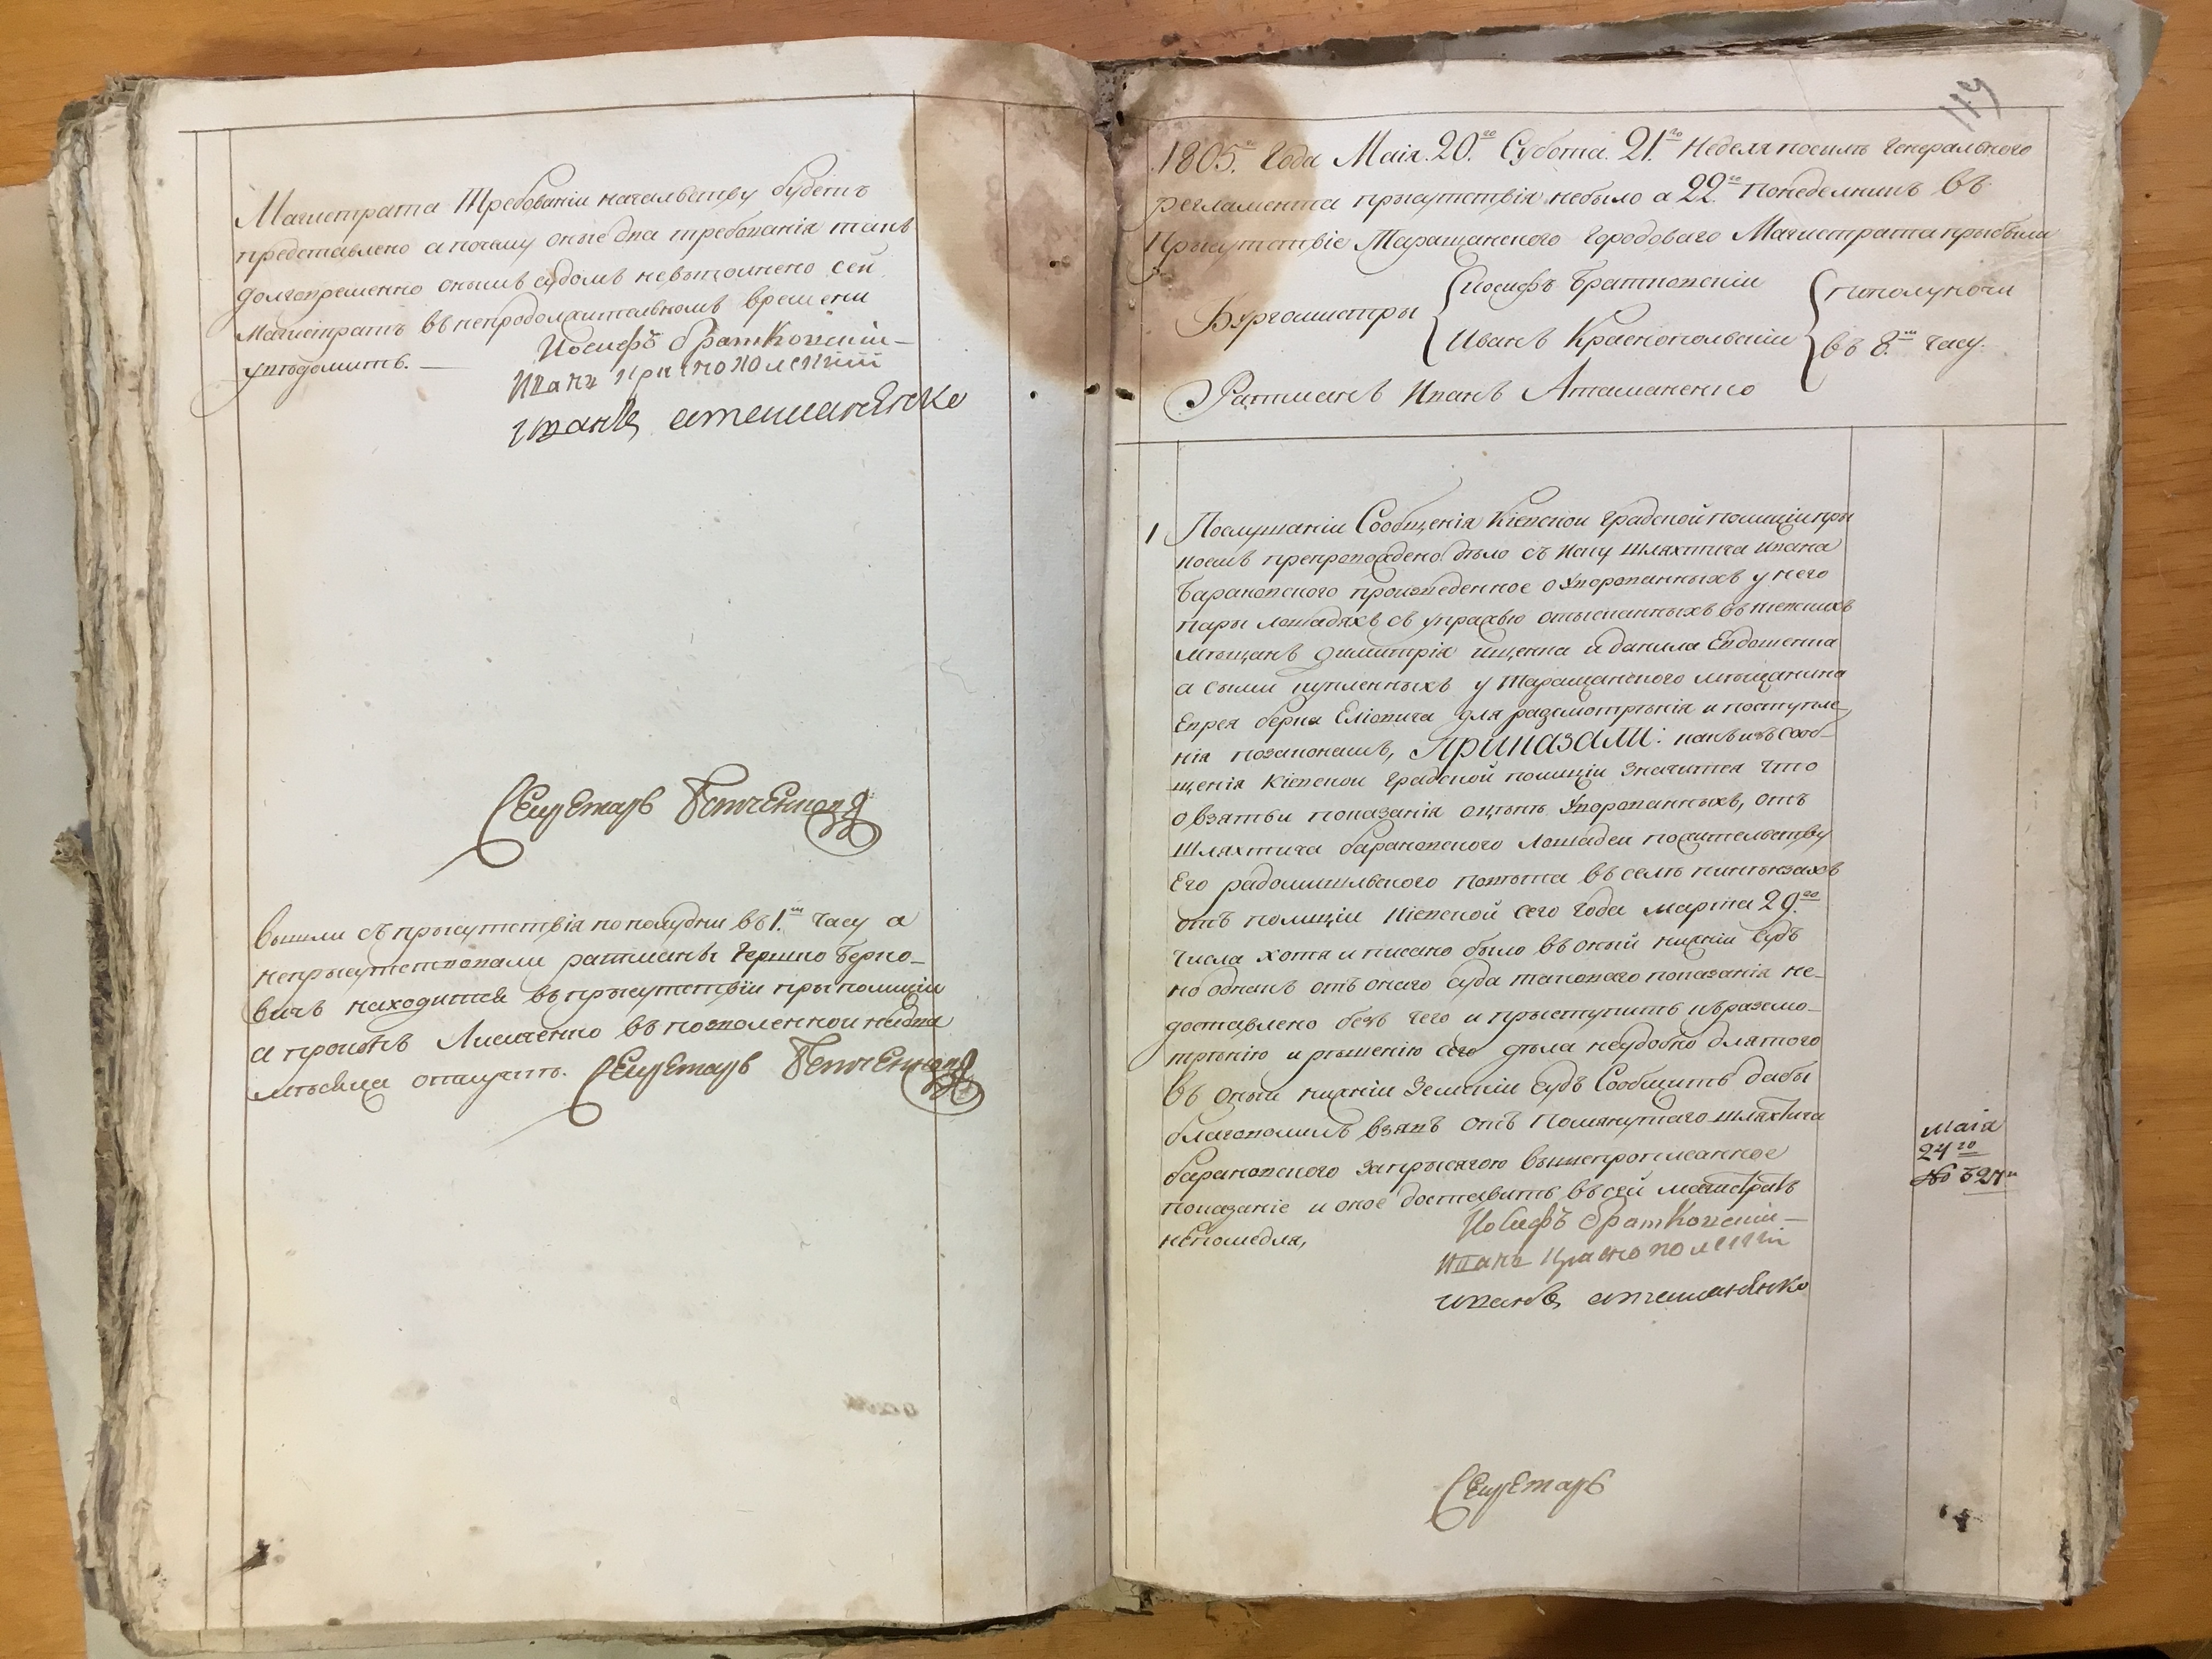 Магистрата Требованіи начальству будетъ
представлено а почему оные два требованія такъ
долговременно онымъ судомъ невыполнено сей
Магистратъ въ непродолжительномъ времени
уведомить. —
Иосифъ братковскій —
Иванъ краснополский
иванъ атаманенко
Секретарь
вышли съ присутствія пополудни въ 1м часу а
неприсутствовали ратманы Гершко Берко-
вичъ находится въ присутствіи при полиціи
а прокопъ Лисаченко въ позволенной на два
мѣсяца отпускъ. Секретарь
119
1805го Года Маія 20го Субота. 21го Неделя посилъ Генерального
регламента присутствія небыло а 22го понеделникъ въ
Присутствіе Таращанского Городоваго Магистрата прибыли
Бургомистры
Иосифъ Братковскій
Иванъ Краснополскій
пополуночи
въ 8м часу.
Ратманъ Иванъ Атаманенко
1 Послушаніи Сообщенія Кіевской Градской полиціи при
коемъ препровождено дѣло съ иску шляхтича Ивана
Барановского произведенное о Уворованныхъ у него
пары лошадяхъ съ упражью отысканныхъ въ киевскихъ
мѣщанъ Димитрія ищенка и данила Евдошенка
а сыми купленныхъ у Таращанского мѣщанина
Еврея берка Еліовича для разсмотрѣнія и поступле-
нія позаконамъ, Приказали: какъ изъ сооб-
щенія Кіевской Градской полиціи значится что
о взятьи показанія оценъ Уворованныхъ, отъ
Шляхтича барановского Лошадей пожительству
Его радомишльского повѣта въ селѣ
отъ полиціи Кіевской сего года марта 29го
числа хотя и писано было въ оный нижній судъ
но однакъ отъ онаго суда таковаго показанія не-
доставлено безъ чего и приступить къ разсмо-
трѣнію и рѣшенію сего дѣла неудобно для того
въ оный нижній Земскій Судъ Сообщить дабы
благоволилъ взявъ отъ Помянутаго шляхтича
барановского заприсягою вышепрописанное
показаніе и оное доставить въ сей магистратъ
непомедля,
Иосифъ братковскій —
Иванъ краснополский
иванъ атаманенко
Маія
24го
№ 527м
Секретарь